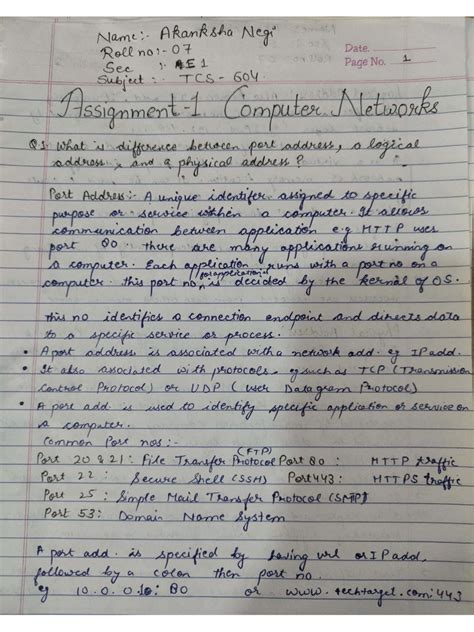 Name:- Akanksha Negi
Roll no:- 07
Sec :- AE1
Subject :- TCS - 604
Date.
Page No. 1
Assignment-1 Computer Networks
Q1 What is difference between port address, a logical
address, and a physical address?
Port Address:- A unique identifer assigned to specific
purpose or service within a computer. It allows
communication between application e.g HTTP uses
port 80 there are many applications running on
a computer. Each application runs with a port no on a
computer. this port no for application is decided by the kernal of OS.
this no identifies a connection endpoint and directs data
to a specific service or process.
• A port address is associated with a network add. eg IP add.
• It also associated with protocols. eg such as TCP (Transmission
Control Protocol) or UDP (User Datagram Protocol)
• A port add. is used to identify specific application or service on
a computer.
Common Port nos:-
Port 20 & 21: File Transfer Protocol (FTP) Port 80 : HTTP traffic
Port 22 : Secure Shell (SSH) Port 443: HTTPS traffic
Port 25 : Simple Mail Transfer Protocol (SMTP)
Port 53: Domain Name System
A port add. is specified by having url or IP add,
followed by a colon then port no.
eg 10.0.0.10: 80 or www.techtarget.com:443